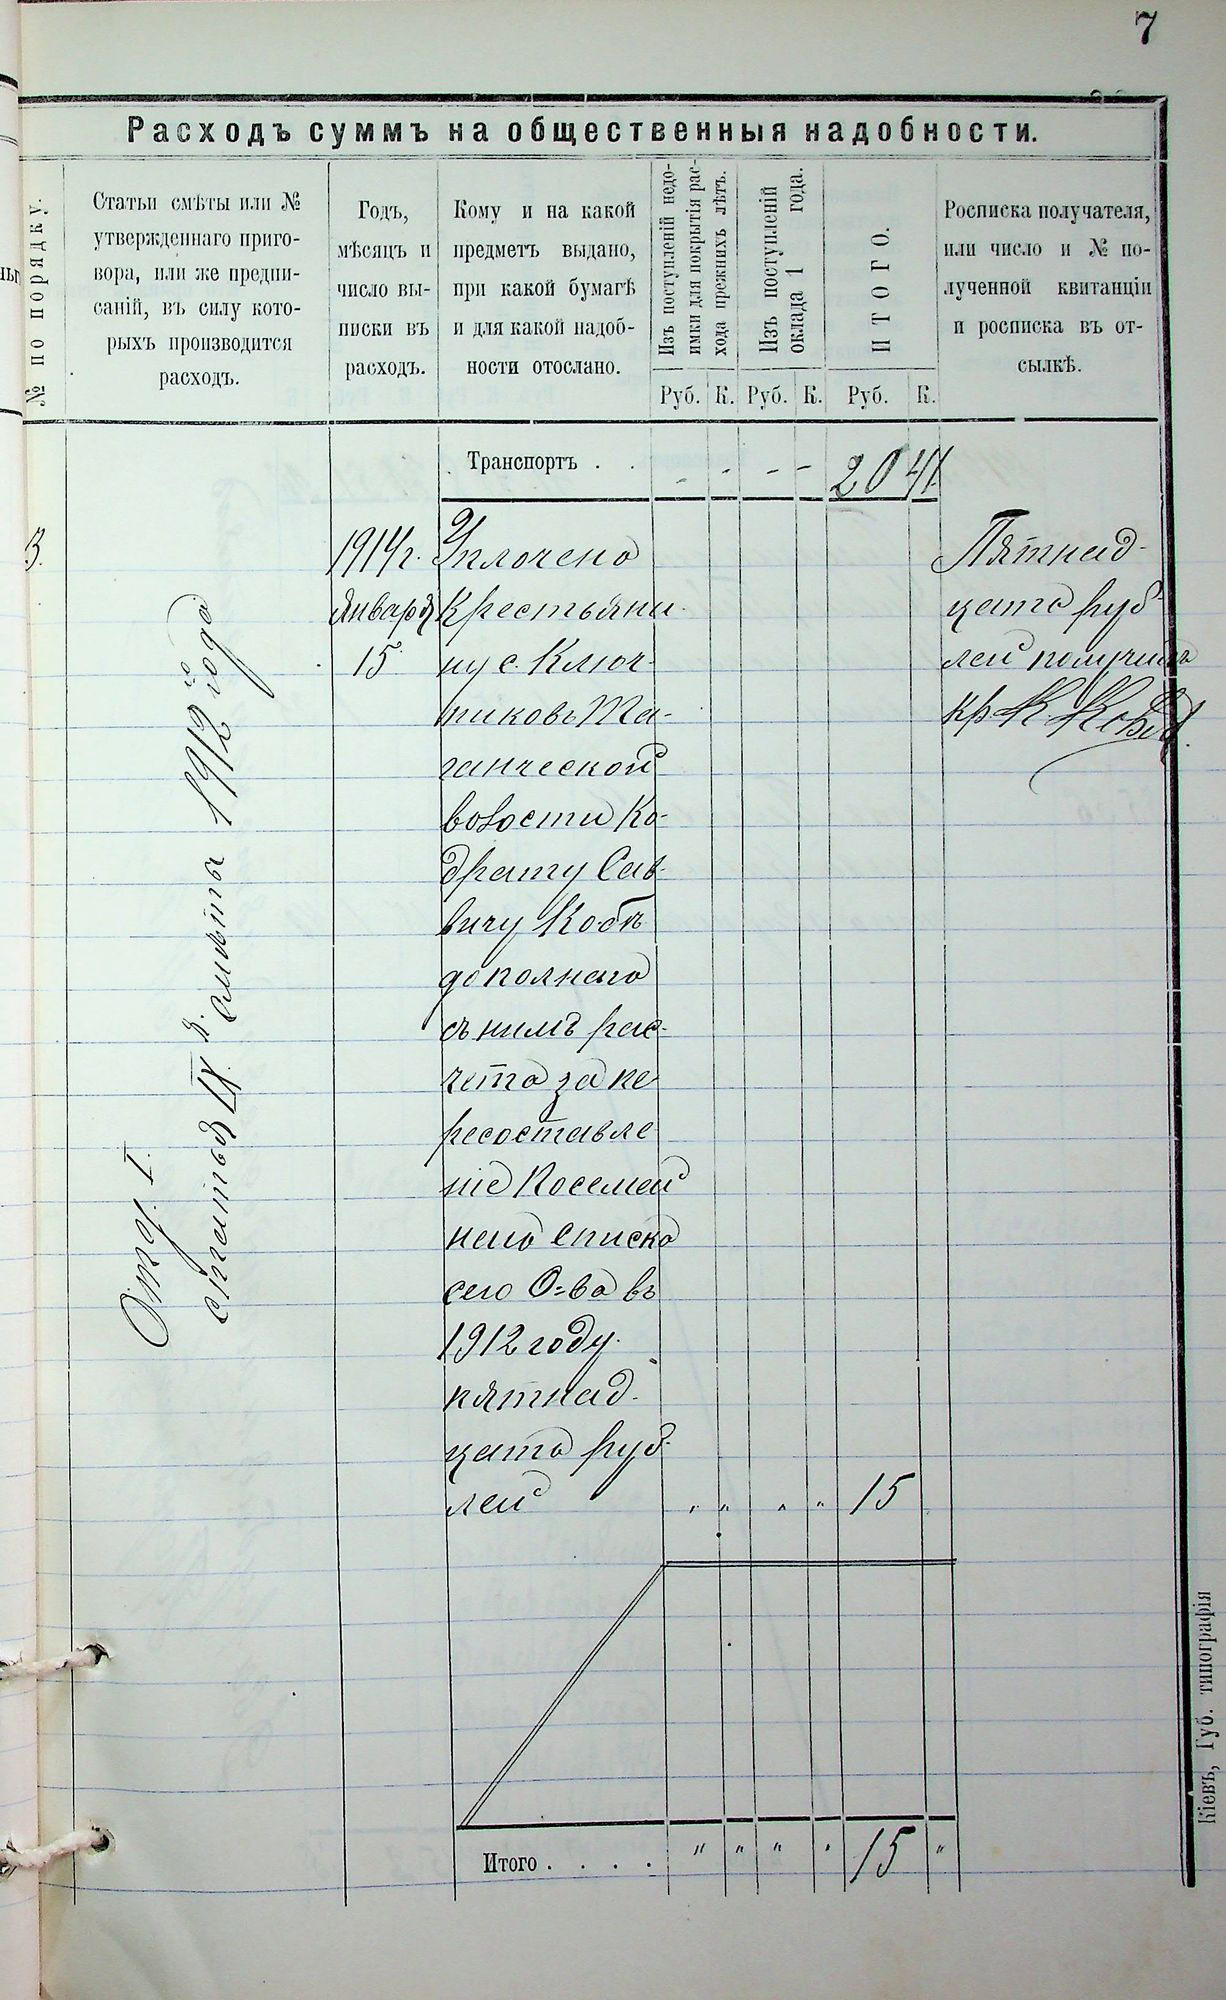 7
Расходъ суммъ на общественныя надобности.
№ по порядку.
Статьи смѣты или №
утвержденнаго приго-
вора, или же предпи-
саній, въ силу кото-
рыхъ производится
расходъ.
Годъ,
мѣсяцъ и
число вы-
писки въ
расходъ.
Кому и на какой
предметъ выдано,
при какой бумагѣ
и для какой надоб-
ности отослано.
Изъ поступленій недо-
имки для покрытія рас-
хода прежнихъ лѣтъ.
Изъ поступленій
оклада 1 года.
ИТОГО.
Росписка получателя,
или число и № по-
лученной квитанціи
и росписка въ от-
сылкѣ.
Руб. К. Руб. К. Руб. К.
Транспортъ . . - - - - 20 41
3.
Отд. I.
статья IX я. смѣты 1912 года
1914 г.
Января
15
Уплочено
Крестьяни-
ну с. Ключ-
никовъ Та-
ганческой
волости Ко-
драту Сав-
вичу Кобѣ
до полнаго
съ нимъ рас-
чета за пе-
ресоставле
ніе Посемей
наго списка
сего О-ва въ
1912 году.
пятнад-
цать руб-
лей " " " " 15
Пятнад-
цать руб-
лей получилъ
кр К. Коба
Итого . . . . " " " " 15 "
Кіевъ, Губ. типографія